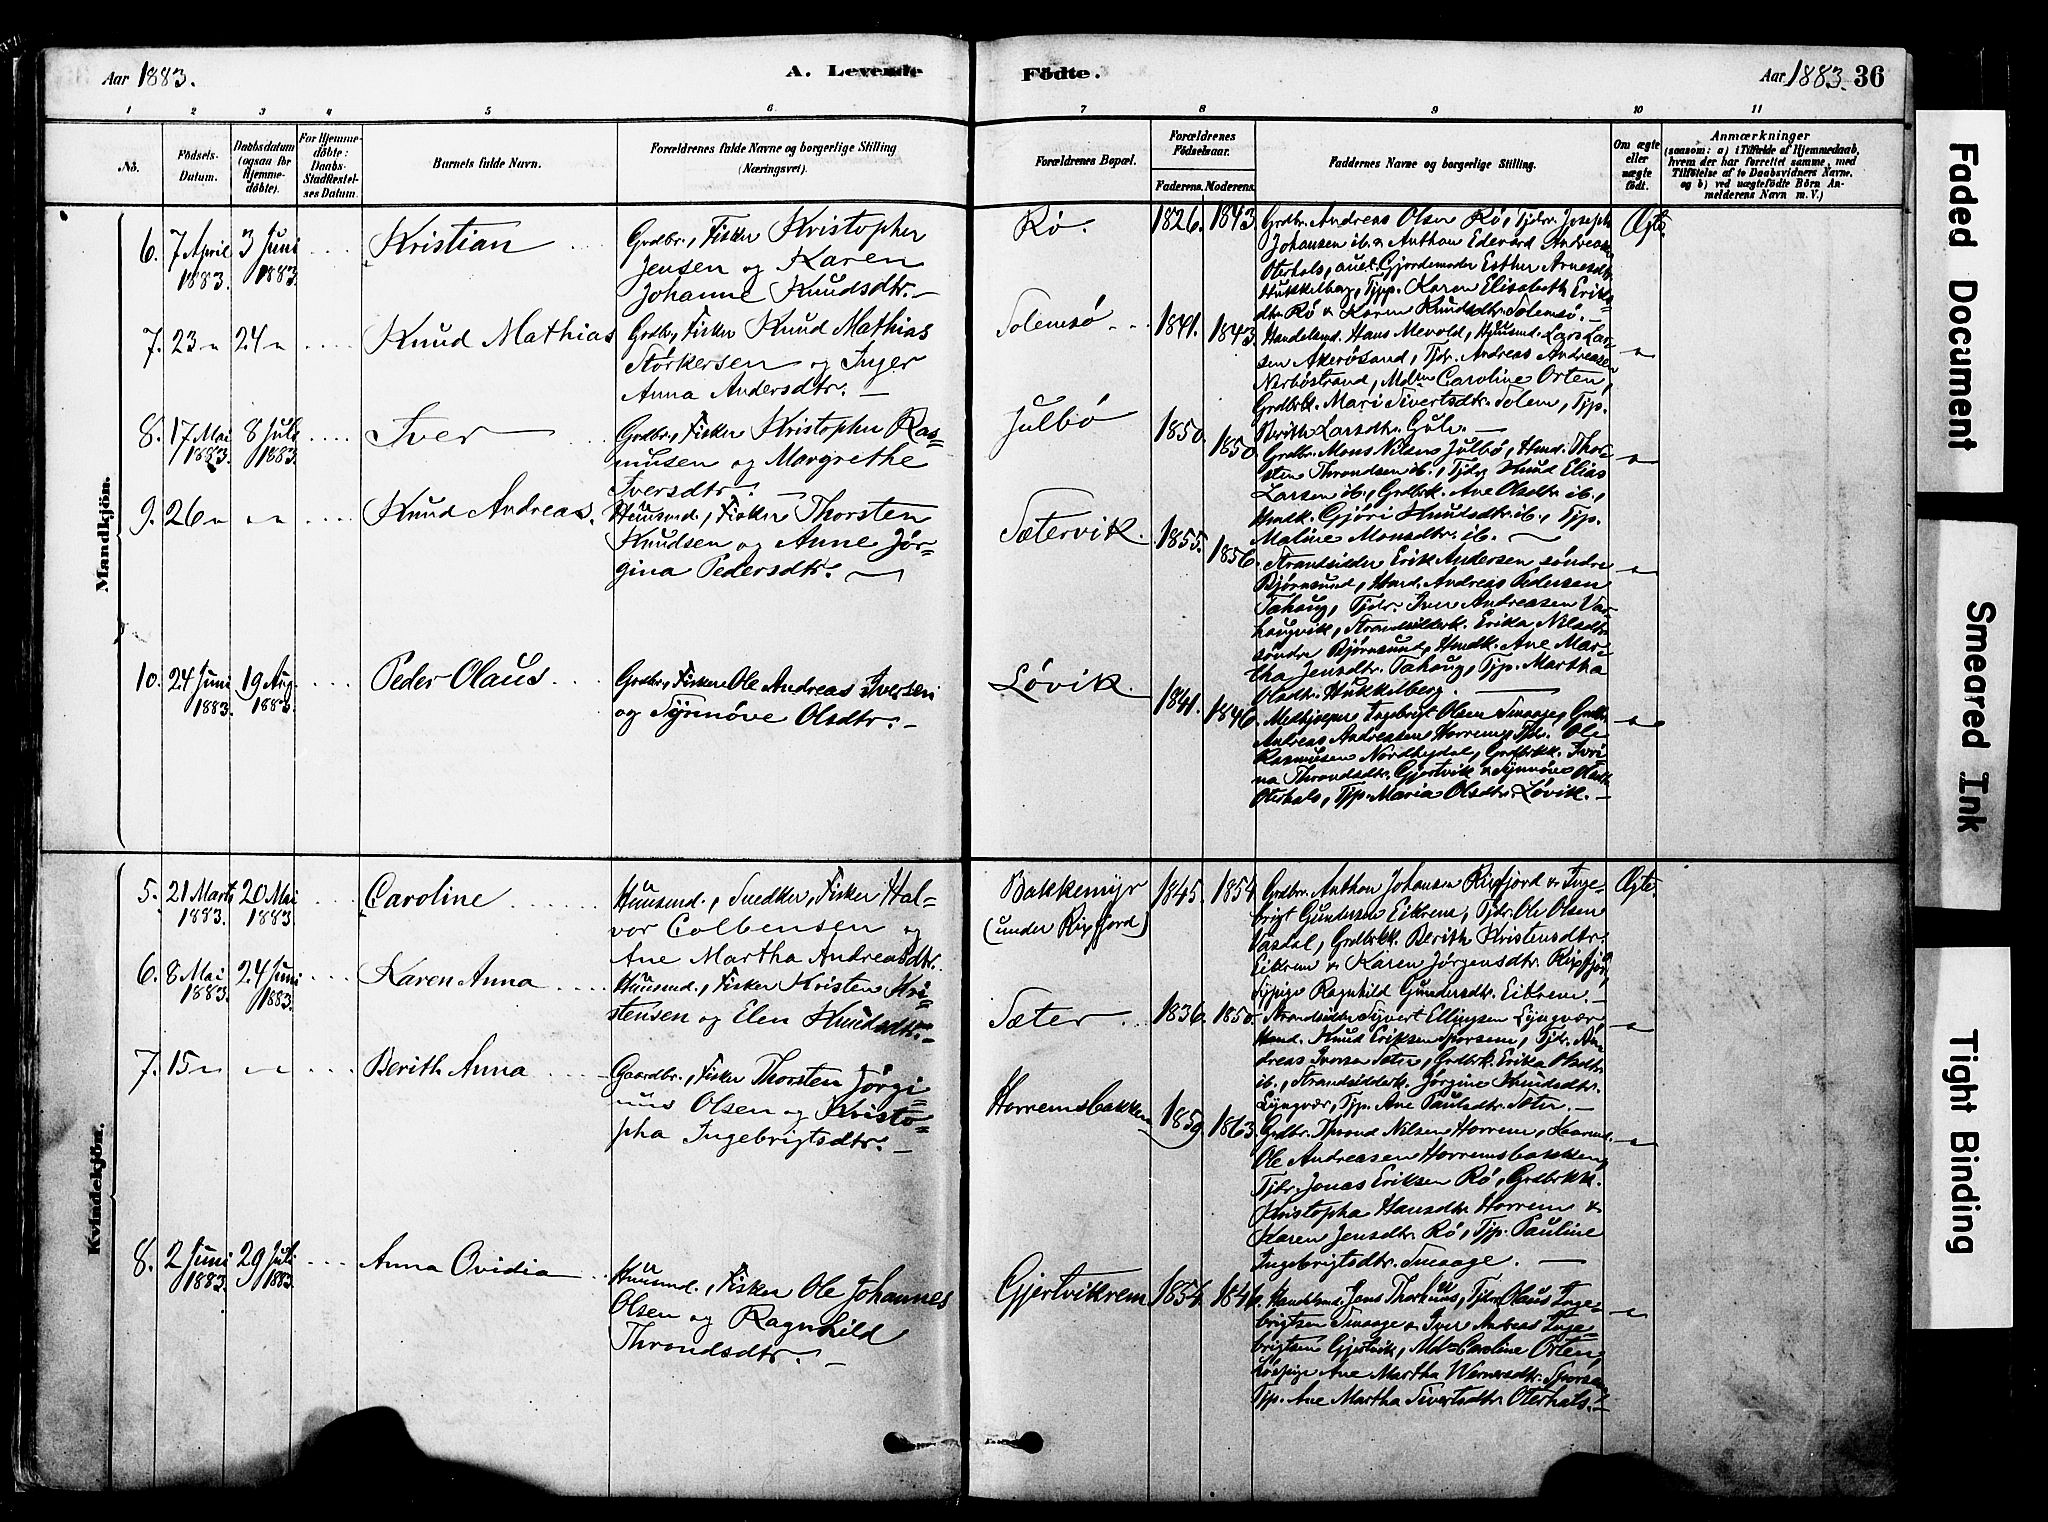 Aar 1883.
A. Levende
Födte.
Aar 1883. 36
1 2 3 4 5 6 7 8 9 10 11
No.
Födsels-
Datum.
Daabsdatum
(ogsaa for
Hjemme-
döbte).
For Hjemme-
döbte:
Daabs-
Stadfæstel-
ses Datum.
Barnets fulde Navn.
Forældrenes fulde Navne og borgerlige Stilling
(Næringsvei).
Forældrenes Bopæl.
Forældrenes
Födselsaar.
Faderens. Moderens.
Faddernes Navne og borgerlige Stilling.
Om ægte
eller
uægte
födt.
Anmærkninger
(saasom: a) i Tilfælde af Hjemmedaab,
hvem der har forrettet samme, med
Tilföielse af to Daabsvidners Navne,
og b) ved uægtefödte Börn An-
melderens Navn m. V.)
Mandkjön.
6. 7 April 1883. 3 Juni 1883. Kristian
Grdbr., Fisker Kristopher
Jensen og Karen
Johanne Knudsdtr. —
Rø. 1826. 1843.
Grdbr. Andreas Olsen Rø, Tjdr. Joseph
Johansen ib. & Anthon Edevard Andreasen
Oterhals, Gjordemoder Esther Arnesdtr.
Hukkelberg, Tjp. Karen Elisabeth Eriks-
dtr. Rø & Karen Knudsdtr. Solemsø. —
Ægte.
7. 23 " 24 " Knud Mathias
Grdbr., Fisker Knud Mathias
Størkersen og Inger
Anna Andersdtr. —
Solemsø 1841. 1843.
Handelsmd. Hans Mevold, Huusmd. Lars Lar-
sen Akerøsund, Tjdr. Andreas Andreasen
Nerbøstrand, Caroline Orten,
Grdbrk. Mari Sivertsdtr. Solem, Tjp.
Berith Larsdtr. Gule. —
8. 17 Mai 1883. 8 Juli 1883. Iver
Grdbr., Fisker Kristopher Ras-
mussen og Margrethe
Iversdtr. —
Julbø 1850. 1850.
Grdbr. Mons Nilsen Julbø, Hmd. Thor-
sten Throndsen ib., Tjdr. Knud Elias
Larsen ib., Grdbrk. Ane Olsdtr. ib.,
Hmdk. Gjøri Knudsdtr. ib., Tjp.
Maline Monsdtr. ib. —
9. 26 " " " Knud Andreas.
Huusmd., Fisker Thorsten
Knudsen og Anne Jør-
gina Pedersdtr. —
Sætervik. 1855. 1856.
Strandsidder Erik Andersen søndre
Bjørnsund, Hmd. Andreas Pedersen
Tahaug, Tjdr. Iver Andreasen Var-
haugvik, Strandsidderk. Erika Nilsdtr.
søndre Bjørnsund, Hmdk. Ane Mar-
tha Jensdtr. Tahaug, Tjp. Martha
Olsdtr. Hukkelberg. —
10. 24 Juni 1883. 19 Aug. 1883. Peder Olaus
Grdbr., Fisker Ole Andreas Iversen
og Synnøve Olsdtr. —
Løvik. 1841. 1846.
Medhjælper Ingebrigt Olsen Smaage, Grdbr.
Andreas Andreassen Horrem, Tjdr. Ole
Rasmussen Nordheydal, Grdbrkk. Iveri-
na Throndsdtr. Gjertvik & Synnøve Olsdtr.
Oterhals, Tjp. Maria Olsdtr. Løvik. —
Kvindekjön.
5. 21 Marts 1883. 20 Mai 1883 Caroline
Huusmd., Snedker, Fisker Hal-
vor Colbensen og
Ane Martha Andreasdtr.
Bakkemyr
(under Rixfjord)
1845. 1854.
Grdbr. Anthon Johansen Rixfjord & Inge-
brigt Gundersen Eikrem, Tjdr. Ole Olsen
Vasdal, Grdbrkk. Berith Kristensdtr.
Eikrem & Karen Jørgensdtr. Rixfjor,
Tjpige Ragnhild Gundersdtr. Eikrem. —
Ægte.
6. 8 Mai 1883. 24 Juni 1883. Karen Anna
Huusmd., Fisker Kristen Kri-
stensen og Elen Knudsdtr. —
Sæter. 1836. 1850.
Strandsidder Syvert Ellingsen Lyngvær,
Hmd. Knud Eriksen Sporsem, Tjdr. An-
dreas Iversen Sæter, Grdbrk. Erika Olsdtr.
ib., Strandsidderk. Jørgine Knudsdtr.
Lyngvær, Tjp. Ane Paulsdtr. Sæter. —
7. 15 " " " Berith Anna
Gaardbr., Fisker Thorsten Jørgi-
nus Olsen og Kristo-
pha Ingebrigtsdtr. —
Horremsbakken 1859 1863.
Grdbr. Thrond Nilsen Horrem,
Ole Andreasen Horremsbakken,
Tjdr. Jonas Eriksen Rø, Grdbrkk.
Kristopha Hansdtr. Horrem &
Karen Jensdtr. Rø, Tjp. Pauline
Ingebrigtsdtr. Smaage. —
8. 2 Juni 1883. 29 Juli 1883. Anna Ovidia
Huusmd., Fisker Ole Johannes
Olsen og Ragnhild
Throndsdtr. —
Gjertvikrem 1854. 1846.
Handelsmd. Jens Thorkuus, Tjdr. Olaus Inge-
brigtsen Smaage & Iver Andreas Inge-
brigtsen Gjertvik, Caroline Orten,
Ane Martha Wernersdtr.
Tjp. Ane Martha Sivertsdtr. Oterhals. —
Faded Document
Smeared Ink
Tight Binding